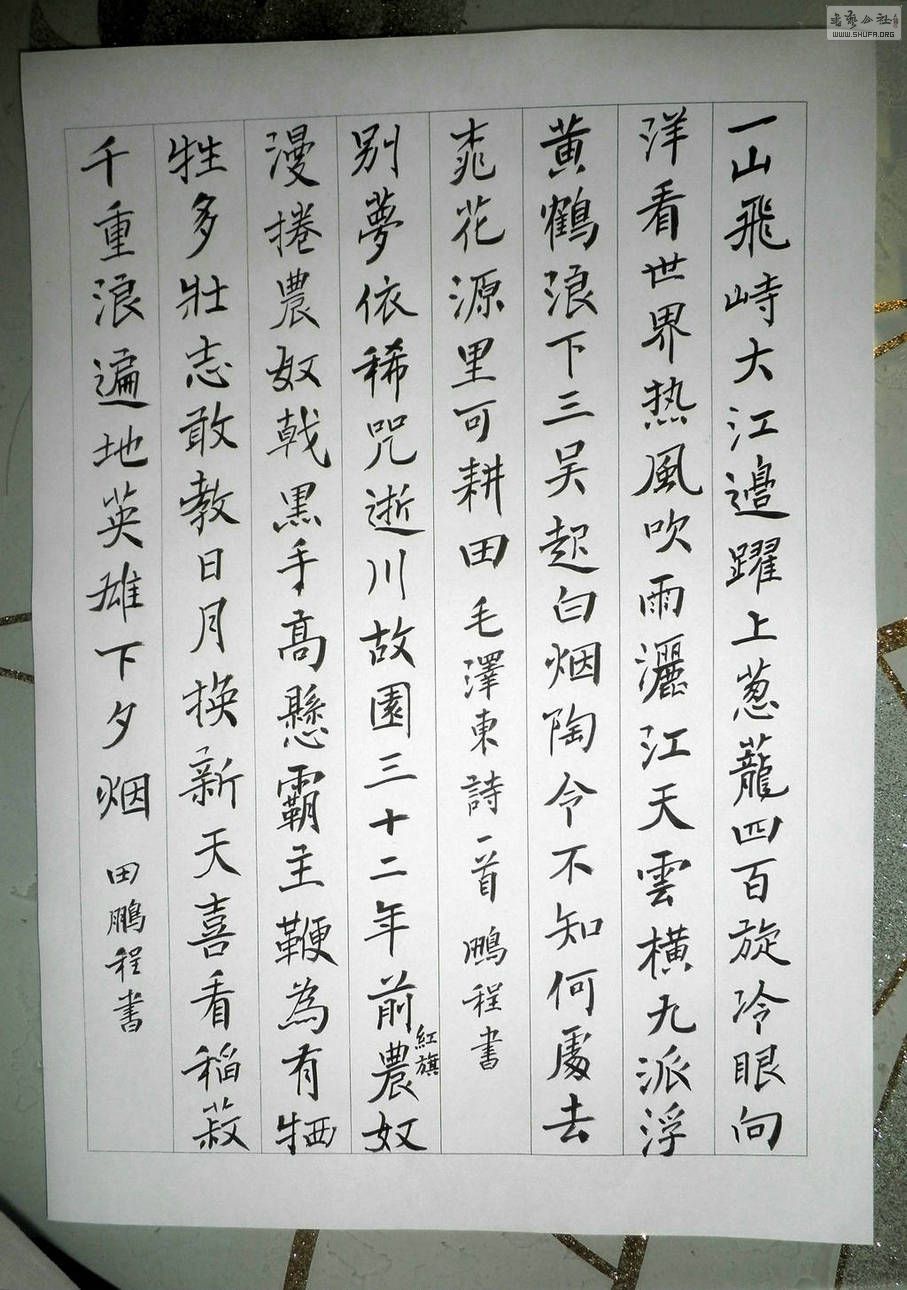 一山飛峙大江邊躍上葱蘢四百旋冷眼向
洋看世界热風吹雨灑江天雲横九派浮
黄鶴浪下三吴起白烟陶令不知何處去
桃花源里可耕田毛澤東詩一首鵬程書
别夢依稀咒逝川故園三十二年前農奴
紅旗
漫捲農奴戟黑手高懸霸主鞭為有牺
牲多壯志敢教日月换新天喜看稻菽
千重浪遍地英雄下夕烟 田鵬程書
書藝公社
WWW.SHUFA.ORG